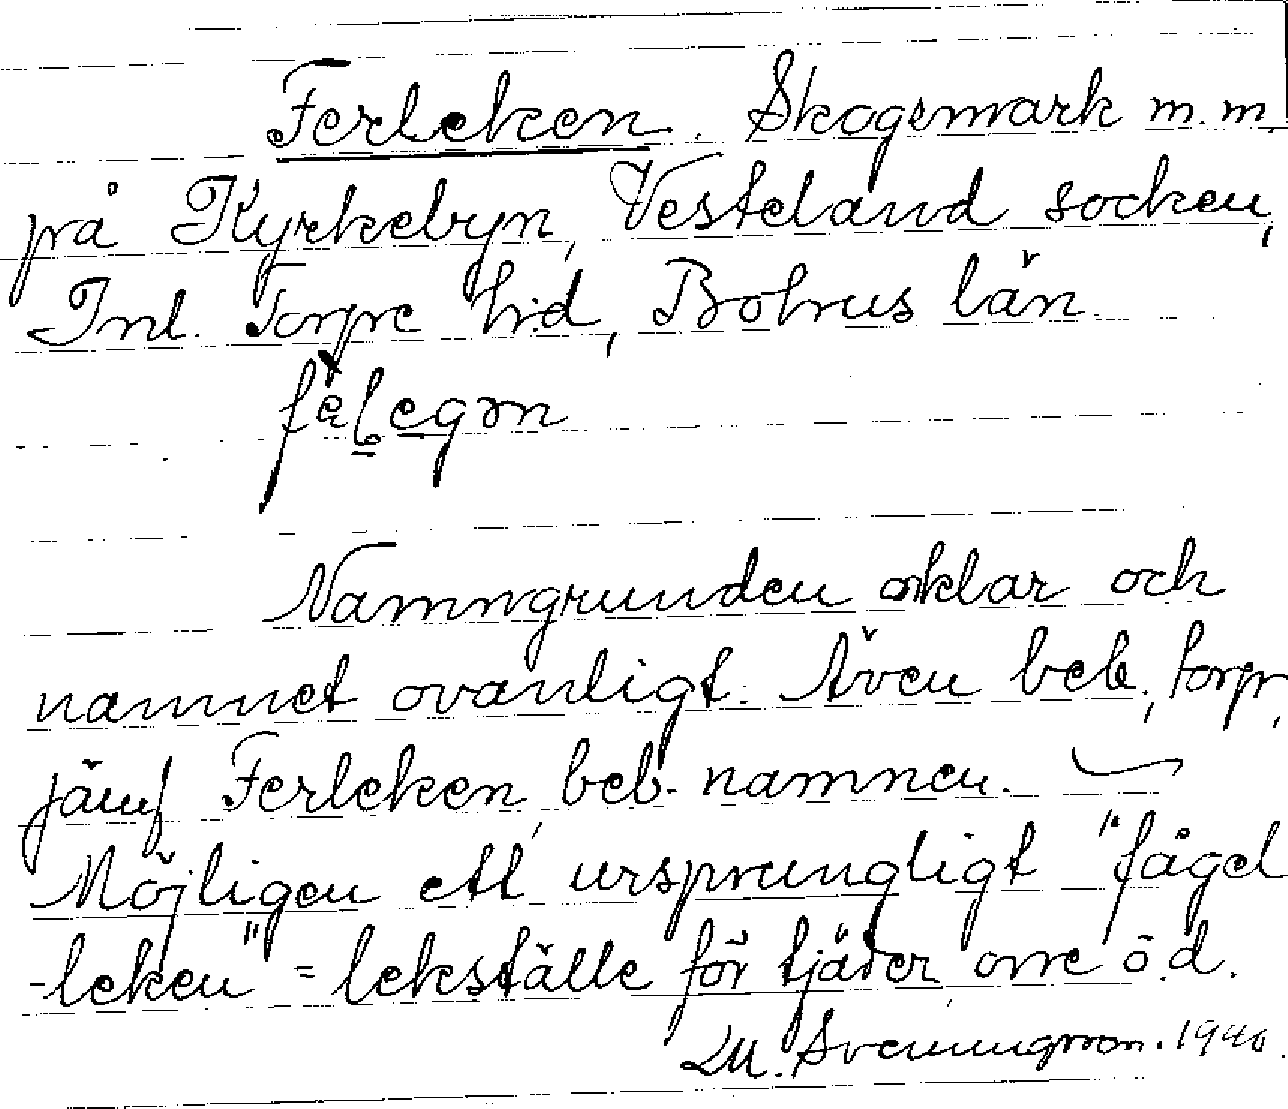 Ferleken. Skogsmark m.m.
på Kyrkebyn, Vesteland socken,
Inl. Torpe h:d, Bohus län.
Namngrunden oklar och
namnet ovanligt. Även beb., torp,
jämf Ferleken, beb. namnen.
Möjligen ett ursprungligt "fågel
-leken" = lekställe för tjäder orre o.d.
M. Svenungsson. 1940.